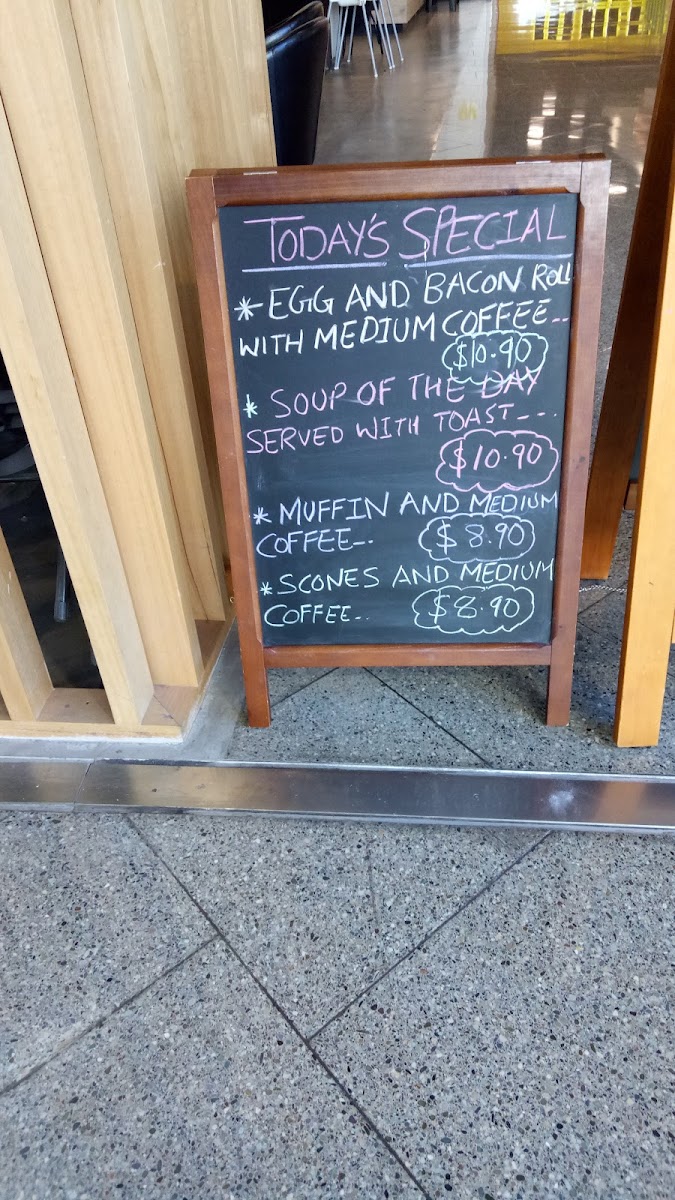 TODAY'S SPECIAL
* EGG AND BACON ROLL
WITH MEDIUM COFFEE--
$10.90
* SOUP OF THE DAY
SERVED WITH TOAST---
$10.90
* MUFFIN AND MEDIUM
COFFEE--. $8.90
* SCONES AND MEDIUM
COFFEE-.. $8.90